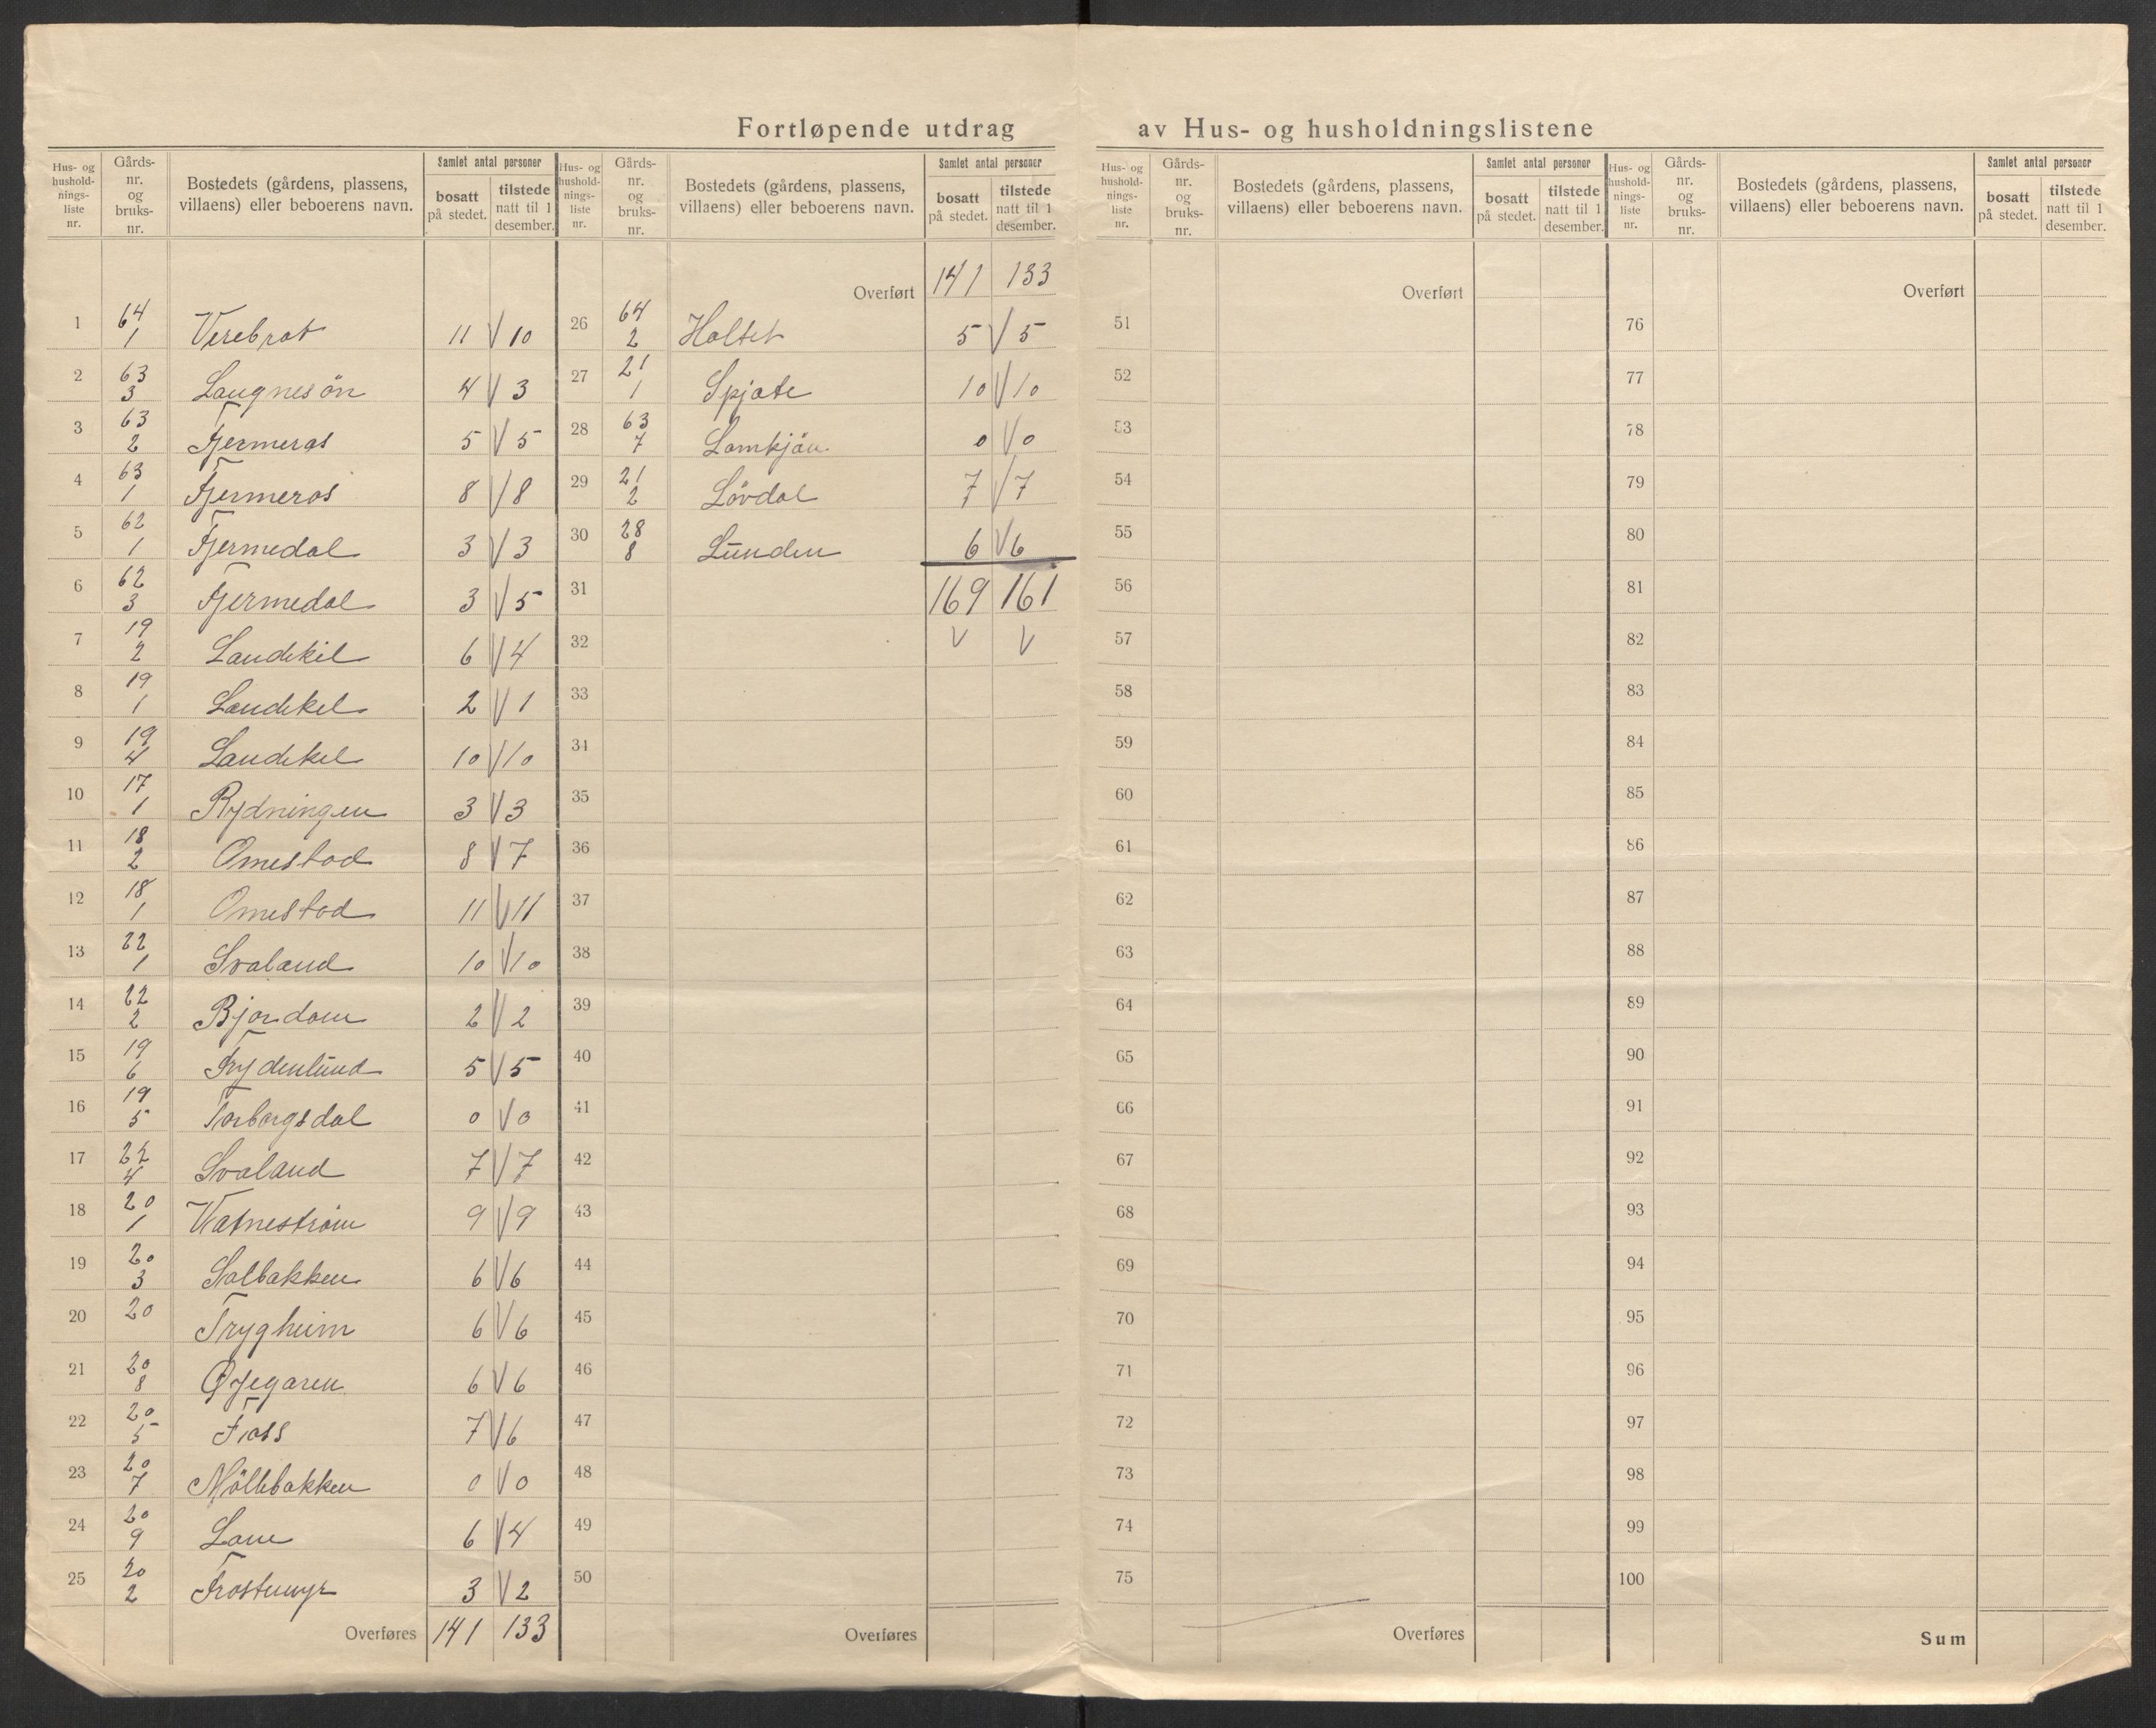 Fortløpende utdrag av Hus- og husholdningslistene
Hus- og husholdnings-liste nr. | Gårds-nr. og bruks-nr. | Bostedets (gårdens, plassens, villaens) eller beboerens navn. | Samlet antal personer | bosatt på stedet. | tilstede natt til 1 desember.
1 64/1 Verebrot 11 V 10
2 63/3 Laugnesön 4 V 3
3 63/2 Fjermeros 5 V 5
4 63/1 Fjermeros 8 V 8
5 62/1 Fjermedal 3 V 3
6 62/3 Fjermedal 3 V 5
7 19/2 Landekil 6 V 4
8 19/1 Landekil 2 V 1
9 19/4 Landekil 10 V 10
10 17/1 Rydningen 3 V 3
11 18/2 Omestad 8 V 7
12 18/1 Omestad 11 V 11
13 22/1 Svaland 10 V 10
14 22/2 Bjordam 2 V 2
15 19/6 Frydenlund 5 V 5
16 19/5 Torborgsdal 0 V 0
17 22/4 Svaland 7 V 7
18 20/1 Vatneström 9 V 9
19 20/3 Solbakken 6 V 6
20 20 Trygheim 6 V 6
21 20/8 Øyegaren 6 V 6
22 20/5 Foss 7 V 6
23 20/7 Möllebakken 0 V 0
24 20/9 Lane 6 V 4
25 20/2 Frostemyr 3 V 2
Overføres 141 133
Hus- og husholdnings-liste nr. | Gårds-nr. og bruks-nr. | Bostedets (gårdens, plassens, villaens) eller beboerens navn. | Samlet antal personer | bosatt på stedet. | tilstede natt til 1 desember.
Overført 141 133
26 64/2 Holtet 5 V 5
27 21/1 Spjote 10 V 10
28 63/7 Lomkjän 0 V 0
29 21/2 Lövdal 7 V 7
30 28/8 Lunden 6 V 6
31 169 161
32 V V
33
34
35
36
37
38
39
40
41
42
43
44
45
46
47
48
49
50
Overføres
Hus- og husholdnings-liste nr. | Gårds-nr. og bruks-nr. | Bostedets (gårdens, plassens, villaens) eller beboerens navn. | Samlet antal personer | bosatt på stedet. | tilstede natt til 1 desember.
Overført
51
52
53
54
55
56
57
58
59
60
61
62
63
64
65
66
67
68
69
70
71
72
73
74
75
Overføres
Hus- og husholdnings-liste nr. | Gårds-nr. og bruks-nr. | Bostedets (gårdens, plassens, villaens) eller beboerens navn. | Samlet antal personer | bosatt på stedet. | tilstede natt til 1 desember.
Overført
76
77
78
79
80
81
82
83
84
85
86
87
88
89
90
91
92
93
94
95
96
97
98
99
100
Sum